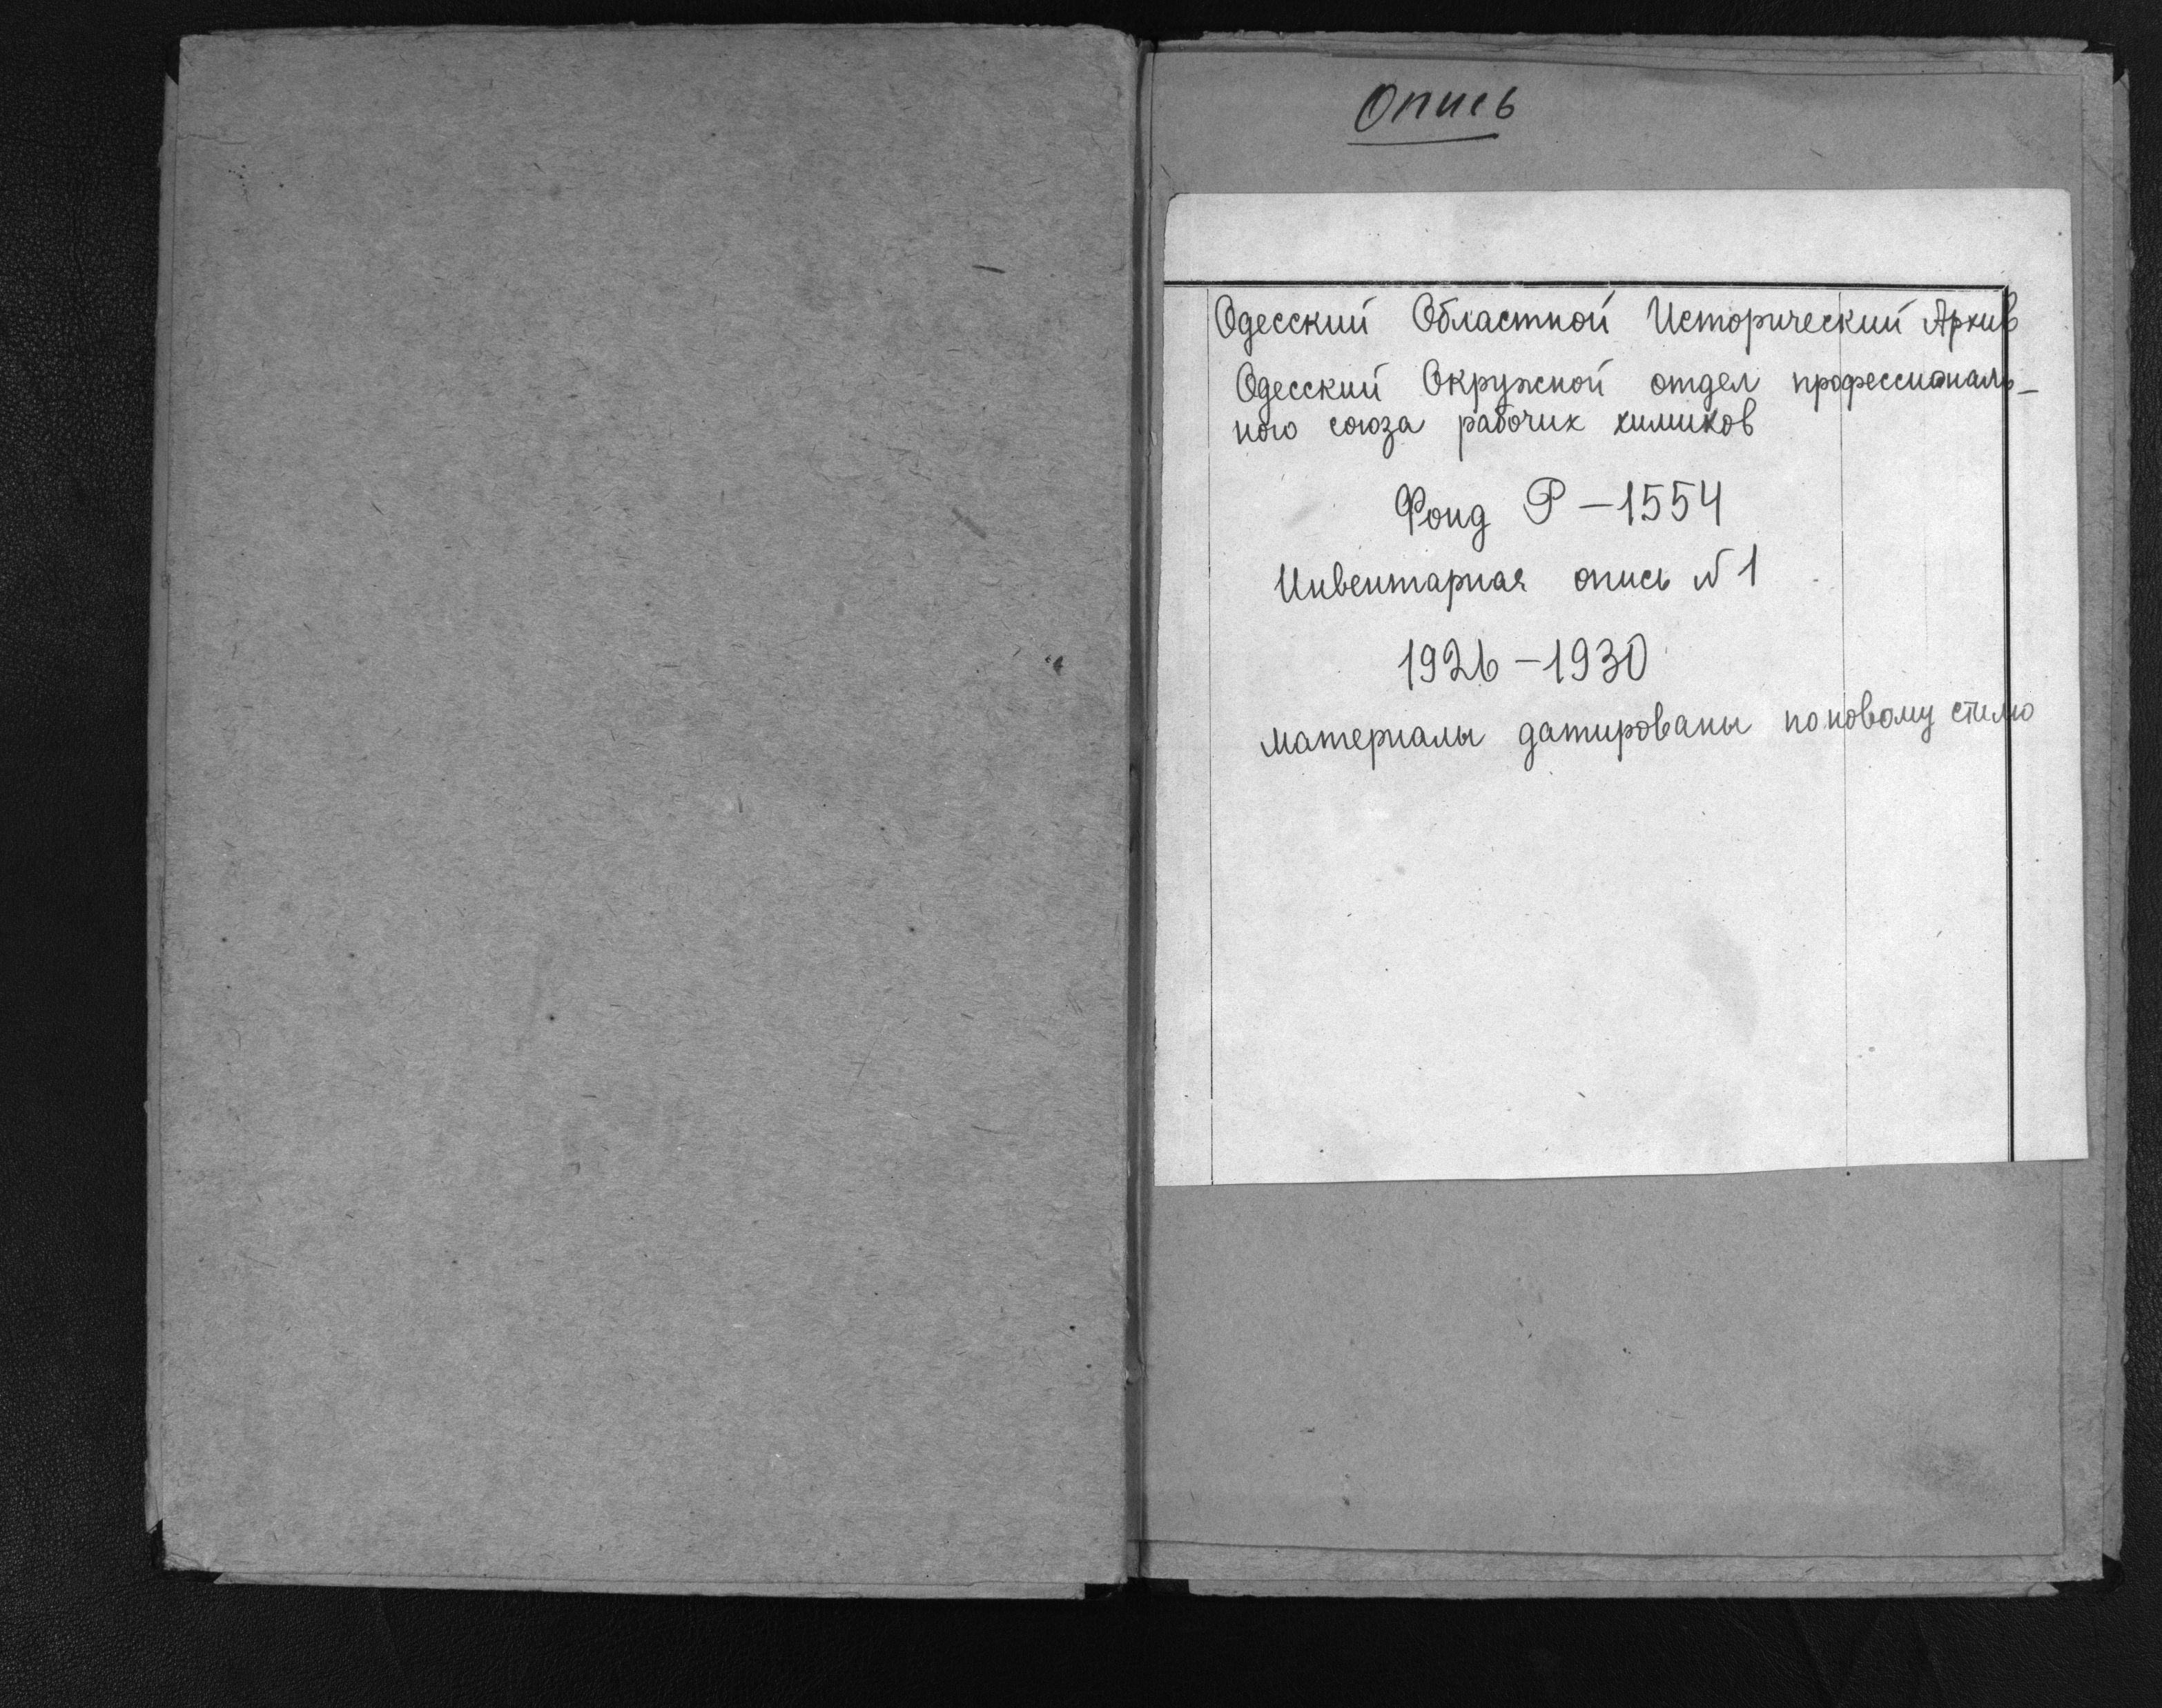 Опись
Одесский Областной Исторический Архив
Одесский Окружной отдел профессиональ-
ного союза рабочих химиков
Фонд Р-1554
Инвентарная опись N 1
1926-1930
материалы датированы по новому стилю